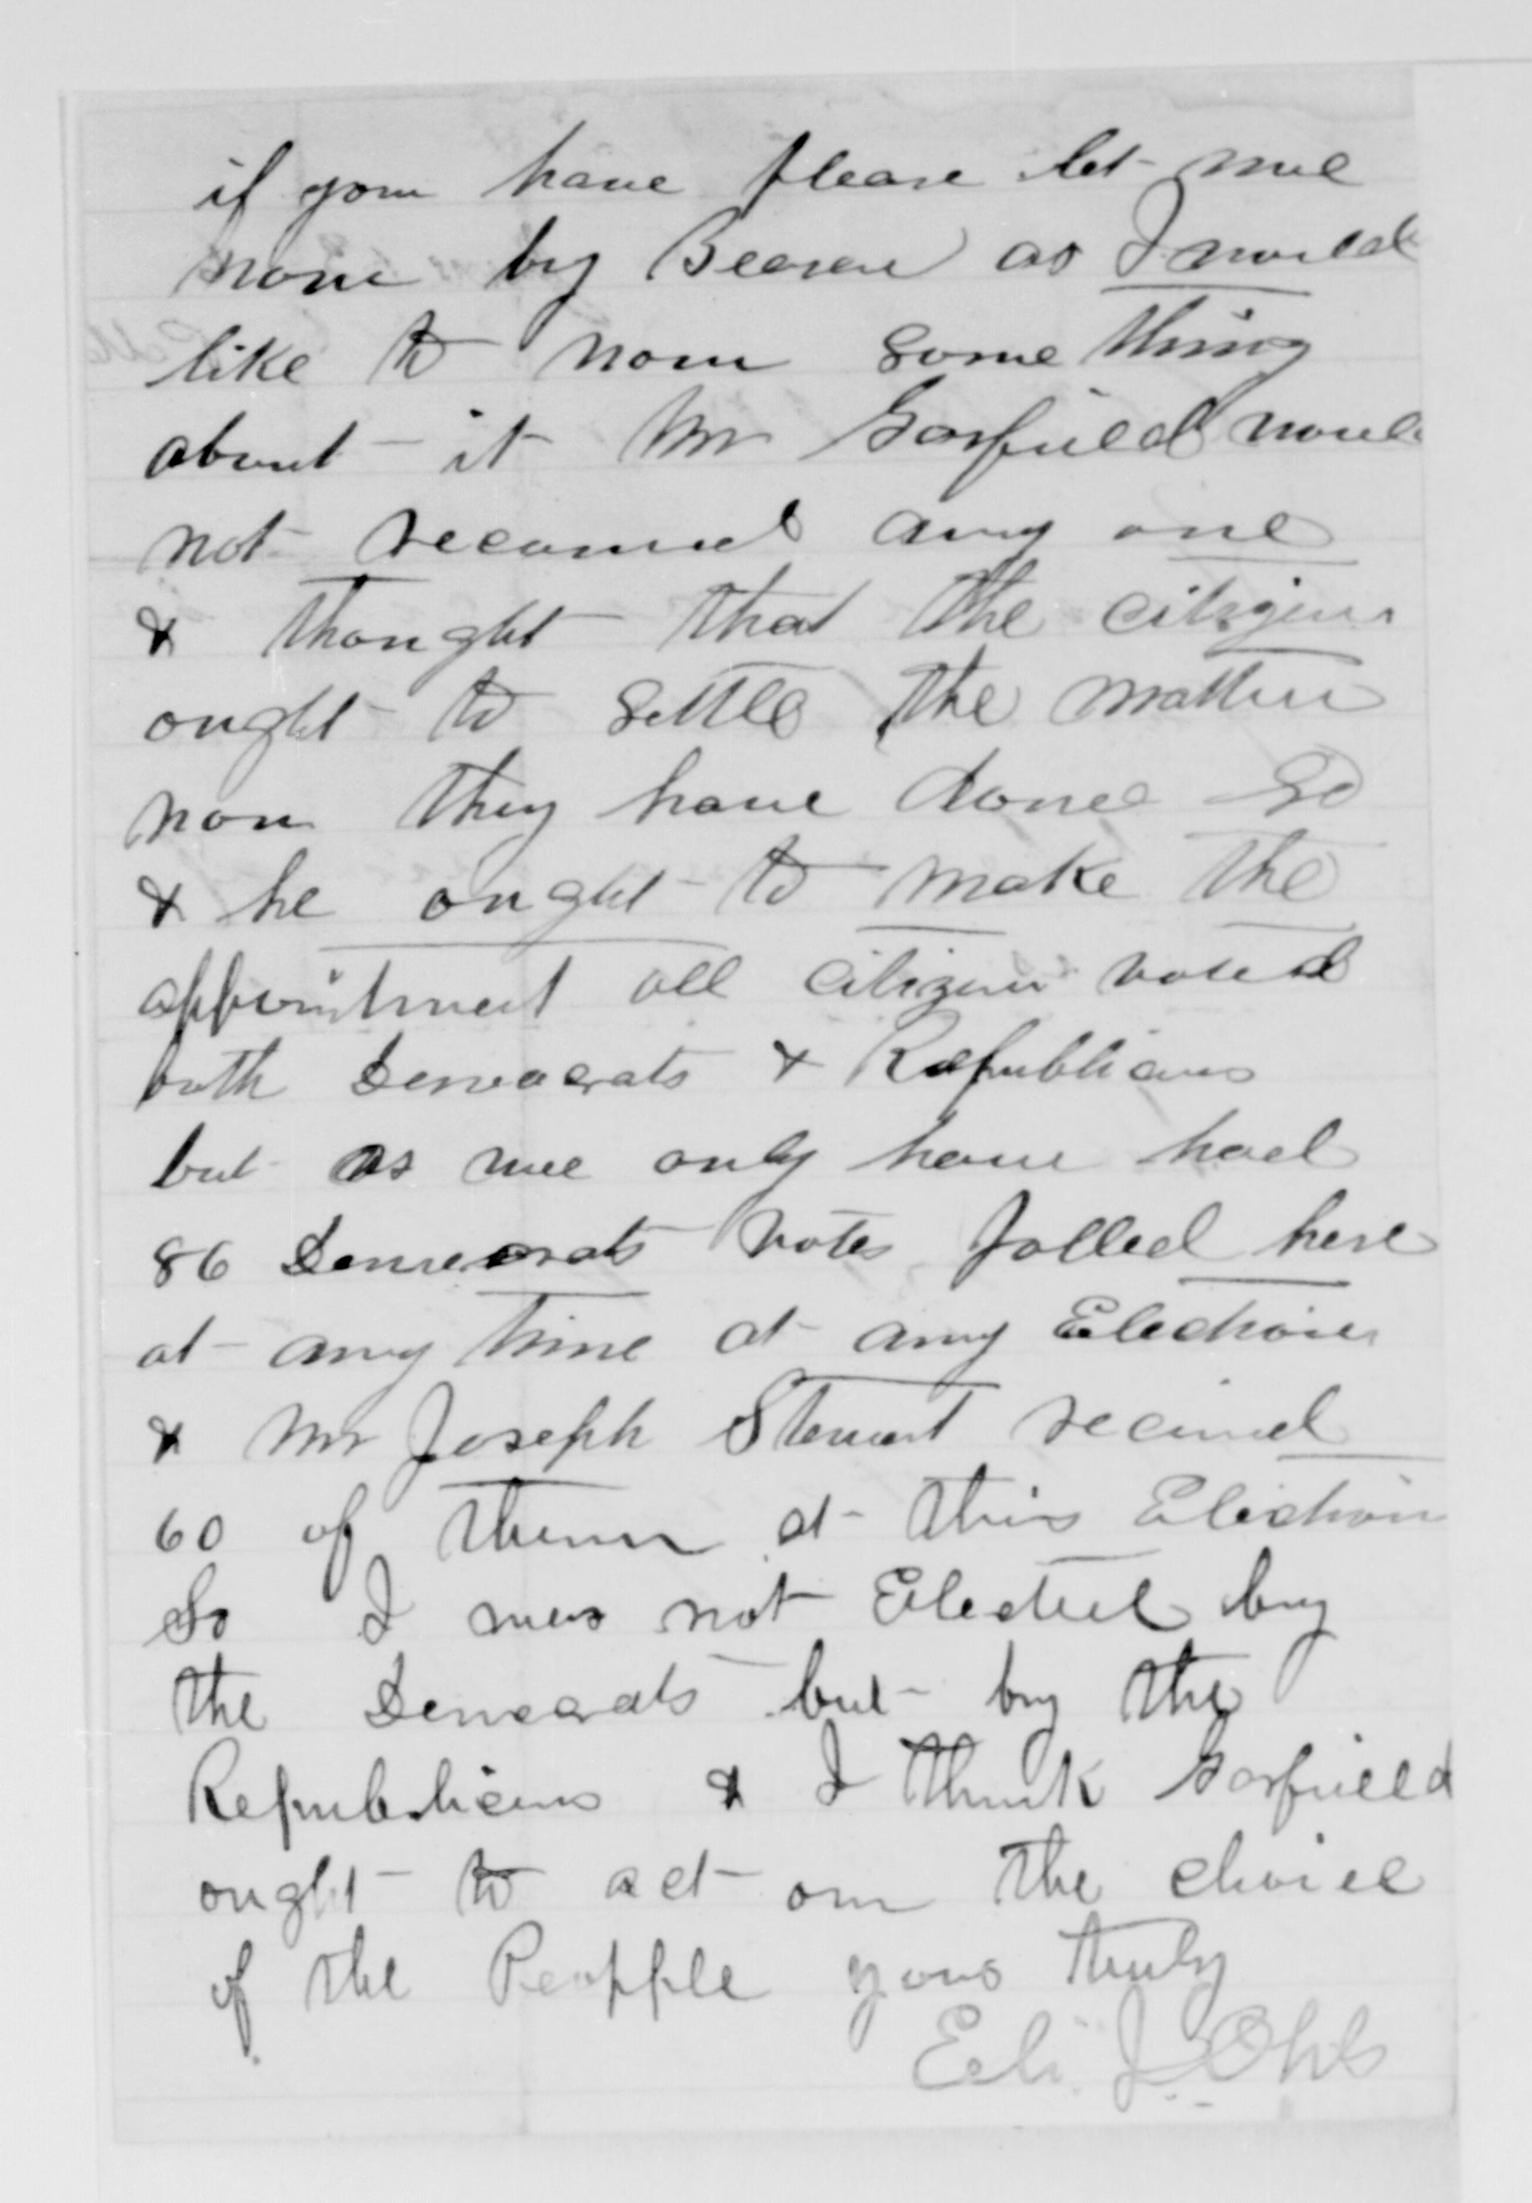 if you have please let mee
now by Bearer as I would
like to now some thing
about it Mr Garfield would
not recomed any one
& thought that the citizens
ought to settle the matter
now they have done so
& he ought to make the
appointment all citizens voted
both Democrats & Republicans
but as wee only have had
86 Democrats votes polled here
at any time at any Election
& Mr Joseph Stewart recived
60 of them at this Election
So I was not Elected by
the Democrats but by the
Republicans & I think Garfield
ought to act on the choice
of the Peopple yours truly
Eli J. Ohls